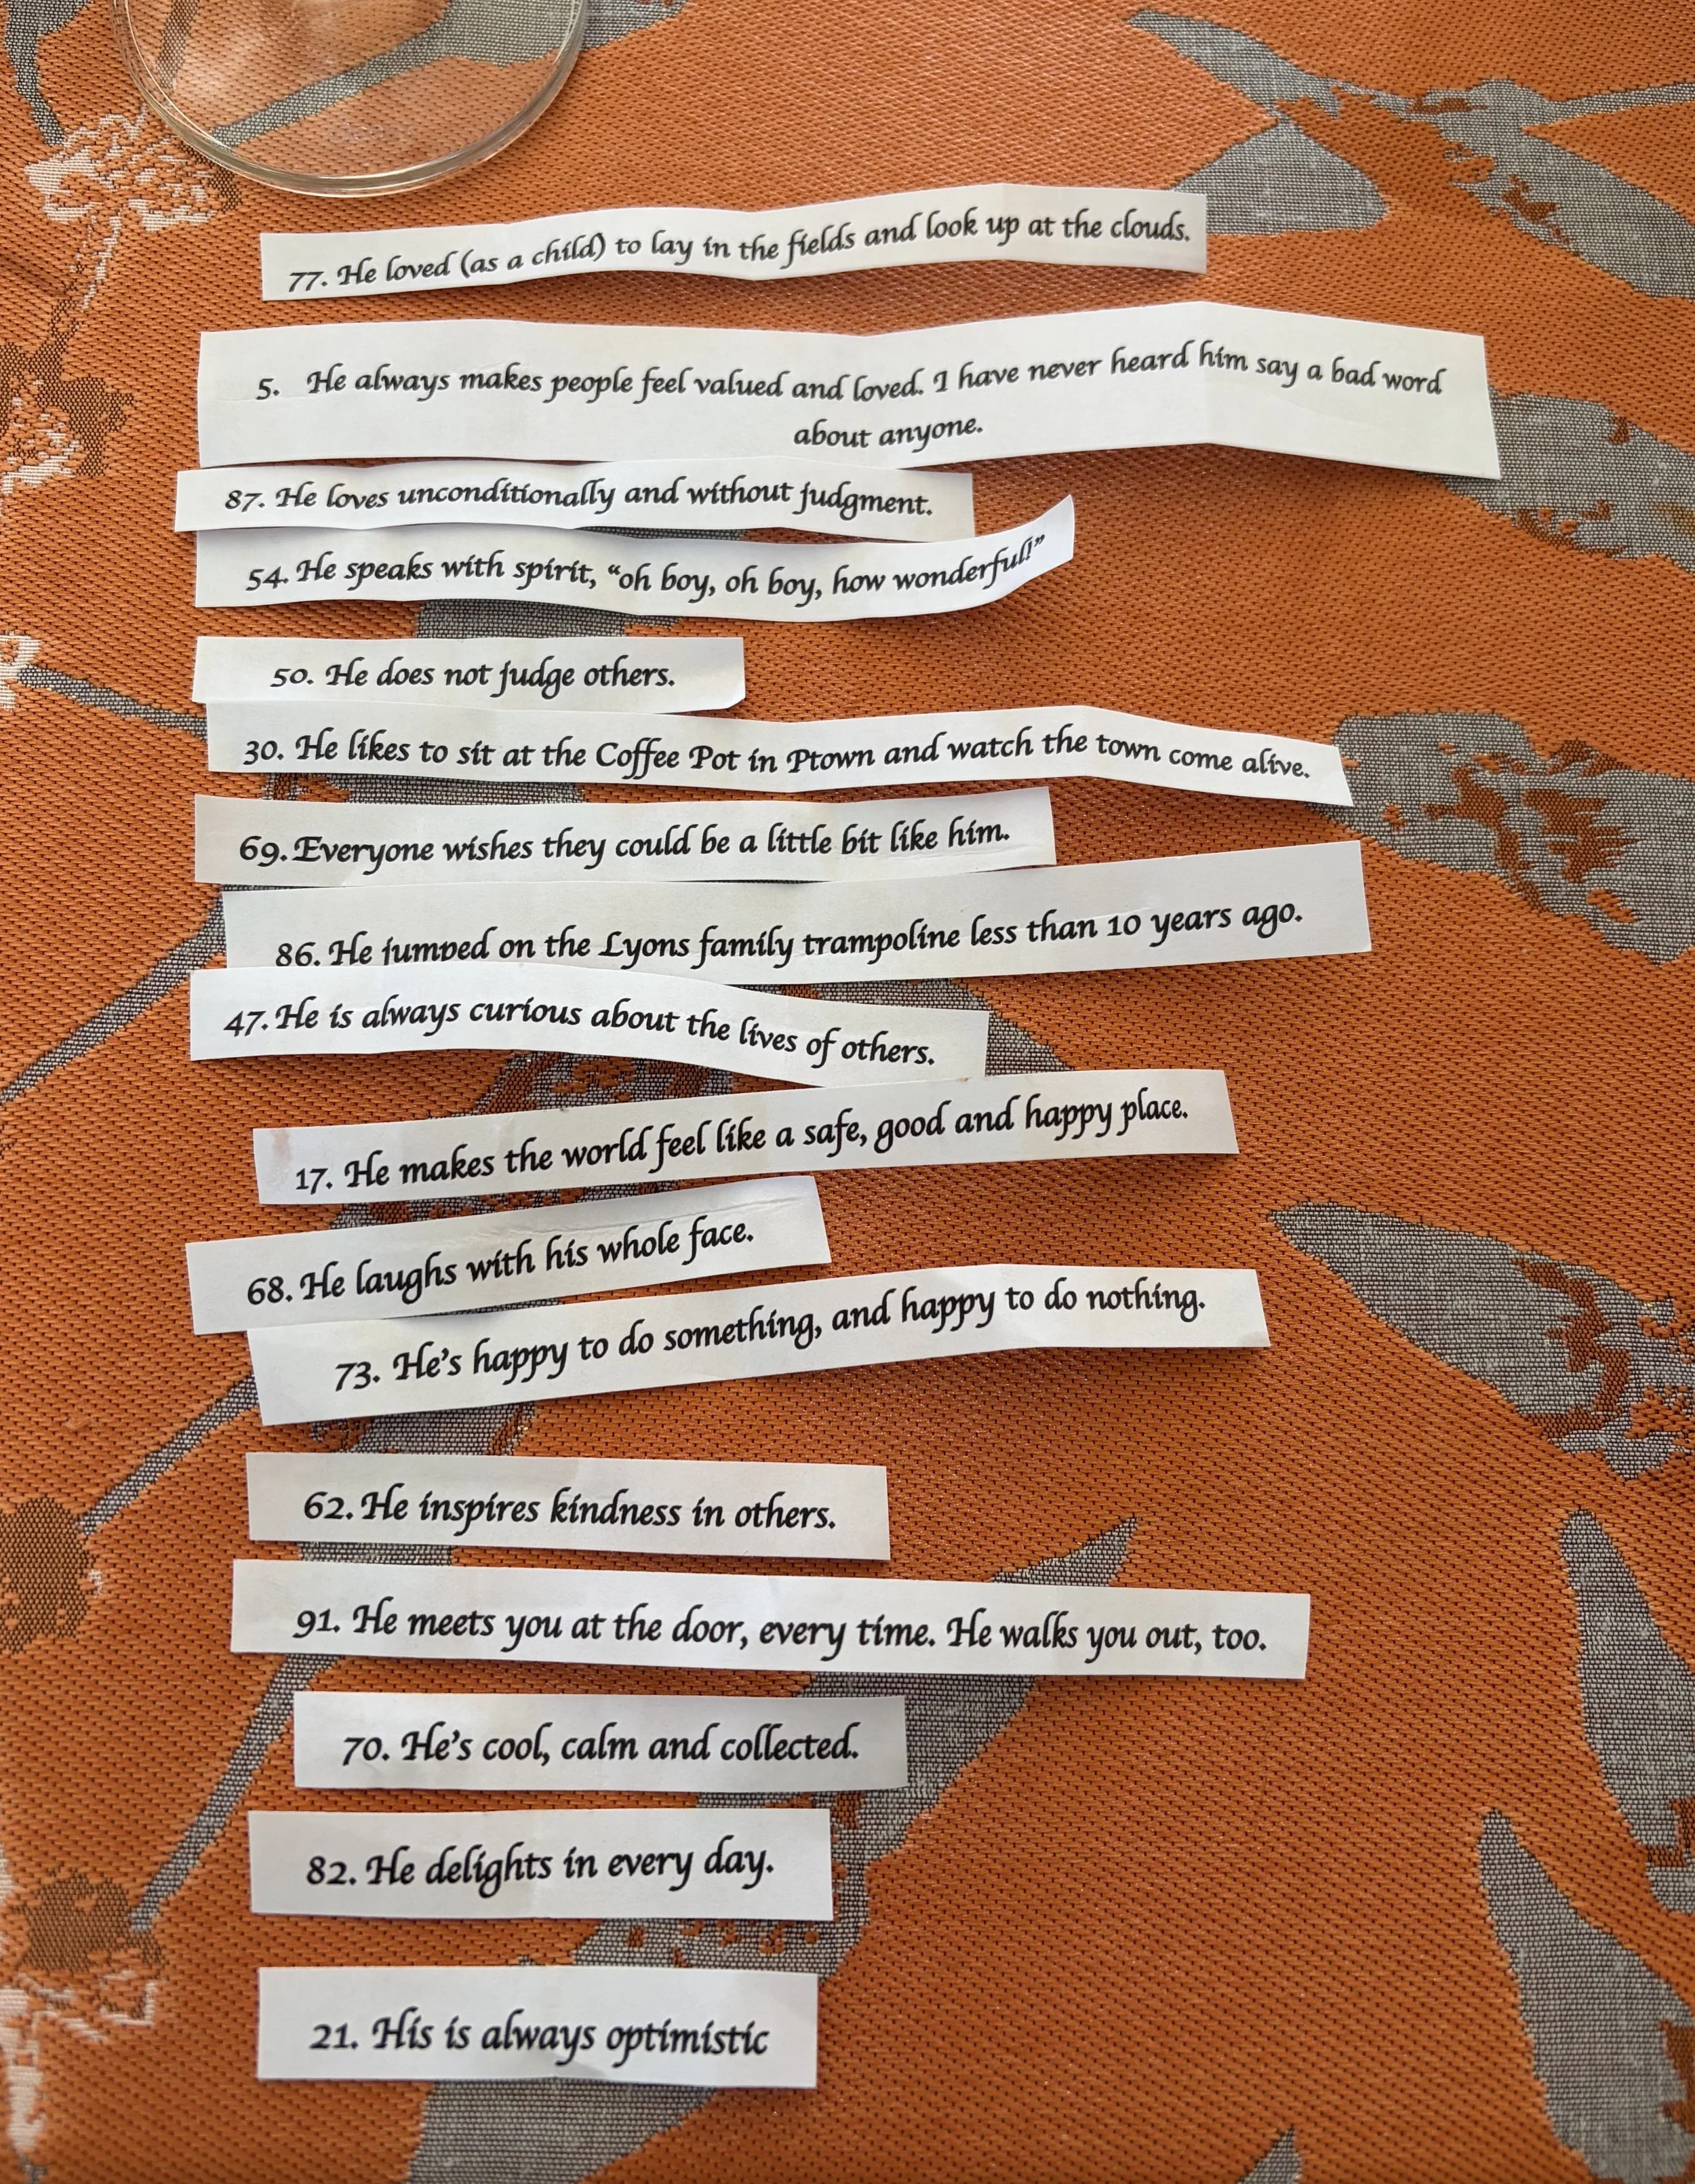 77. He loved (as a child) to lay in the fields and look up at the clouds.
5. He always makes people feel valued and loved. I have never heard him say a bad word
about anyone.
87. He loves unconditionally and without judgment.
54. He speaks with spirit, “oh boy, oh boy, how wonderful!”
50. He does not judge others.
30. He likes to sit at the Coffee Pot in Ptown and watch the town come alive.
69. Everyone wishes they could be a little bit like him.
86. He jumped on the Lyons family trampoline less than 10 years ago.
47. He is always curious about the lives of others.
17. He makes the world feel like a safe, good and happy place.
68. He laughs with his whole face.
73. He’s happy to do something, and happy to do nothing.
62. He inspires kindness in others.
91. He meets you at the door, every time. He walks you out, too.
70. He’s cool, calm and collected.
82. He delights in every day.
21. His is always optimistic